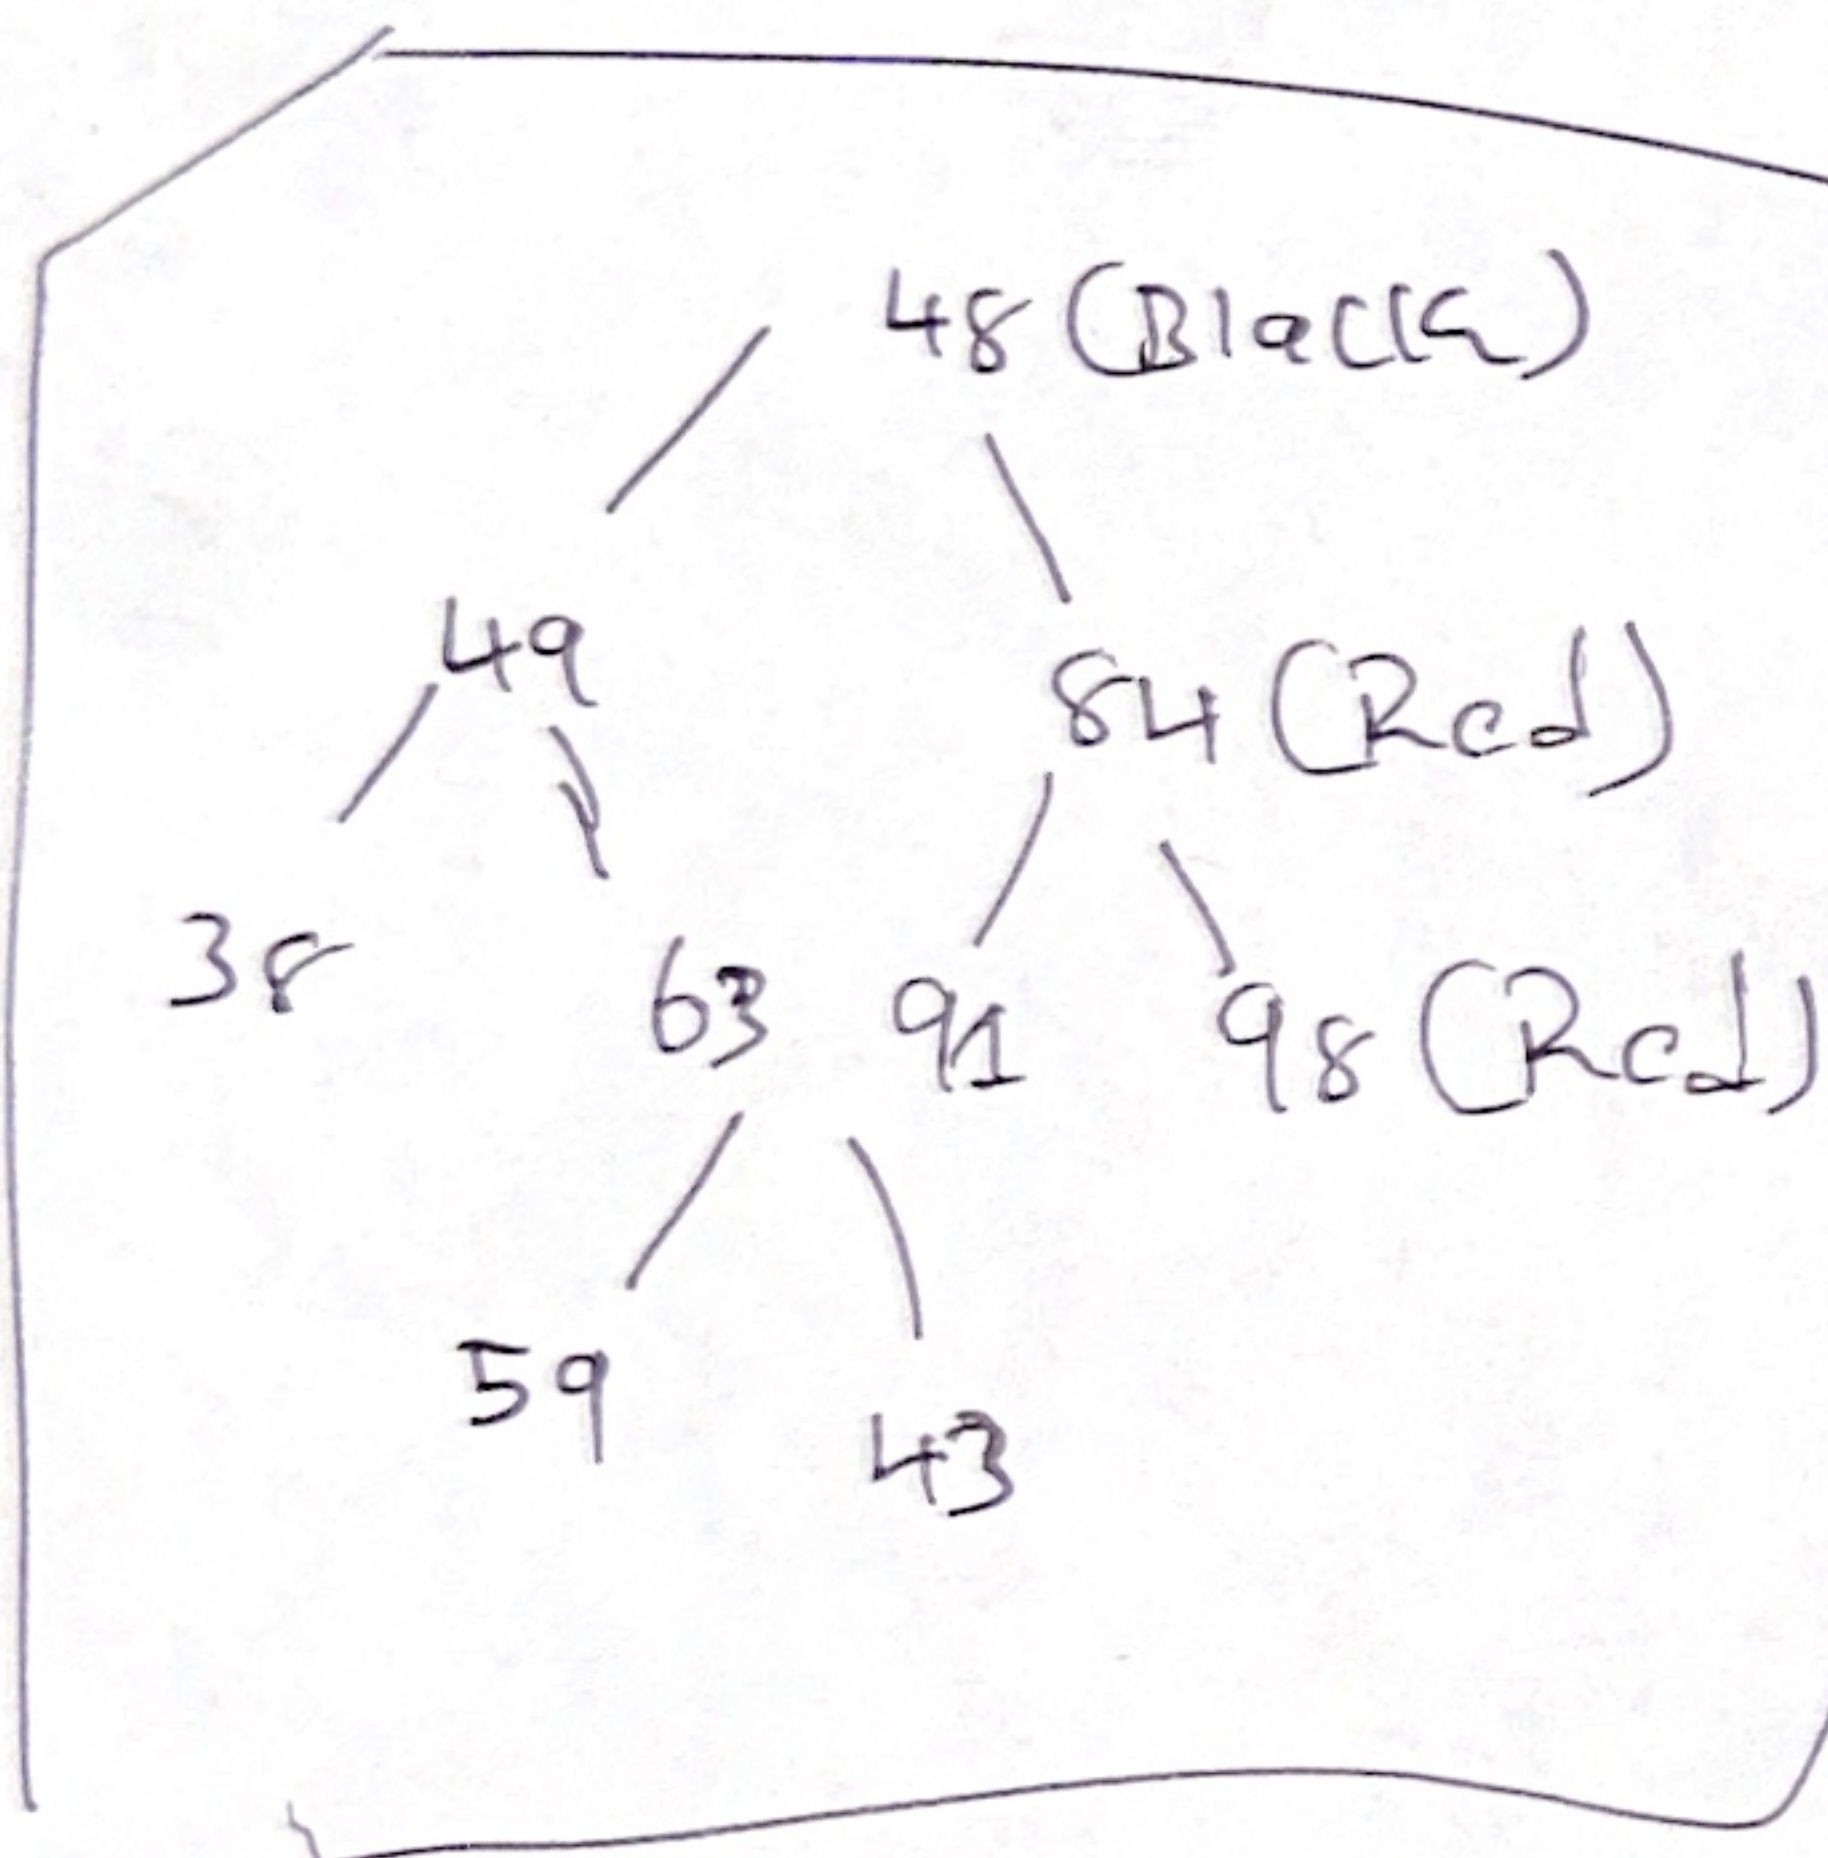 48 (Black)
49 84 (Red)
38 63 91 98 (Red)
59 43